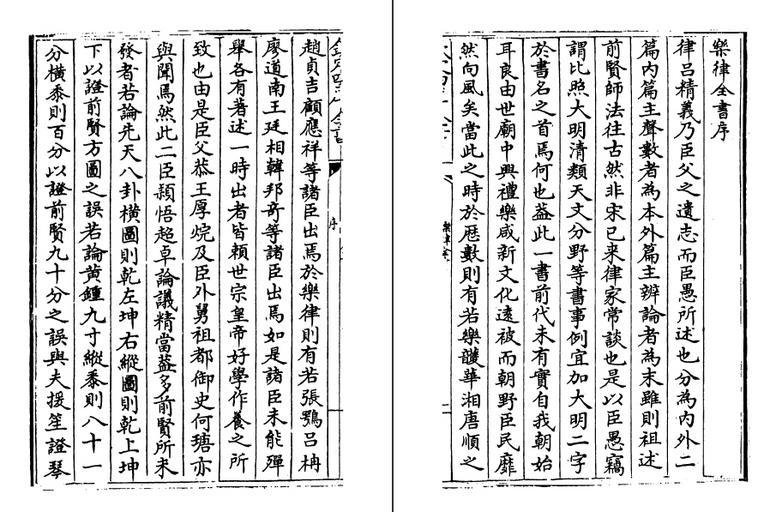 樂律全書序
律呂精義乃臣父之遺志而臣愚所述也分為內外二
篇內篇主聲數者為本外篇主辨論者為末雖則祖述
前賢師法往古然非宋已來律家常談也是以臣愚竊
謂比照大明清類天文分野等書事例宜加大明二字
於書名之首焉何也葢此一書前代未有實自我朝始
耳良由世廟中興禮樂咸新文化遠被而朝野臣民靡
然向風矣當此之時於厯數則有若樂頀華湘唐順之
序
趙貞吉顧應祥等諸臣出焉於樂律則有若張鶚呂柟
廖道南王廷相韓邦竒等諸臣出焉如是諸臣未能殫
舉各有著述一時出者皆頼世宗皇帝好學作養之所
致也由是臣父恭王厚烷及臣外舅祖都御史何瑭亦
與聞焉然此二臣頴悟超卓論議精當葢多前賢所未
發者若論先天八卦横圖則乾左坤右縱圖則乾上坤
下以證前賢方圖之誤若論黄鍾九寸縱黍則八十一
分横黍則百分以證前賢九十分之誤與夫援笙證琴